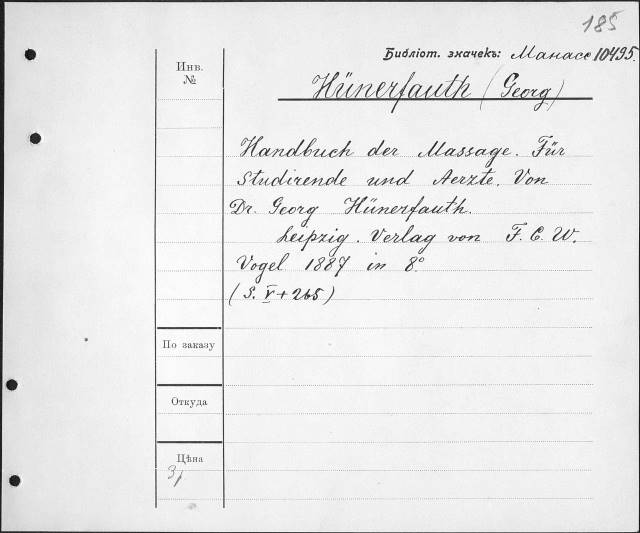 185
Библіот. значекъ: Манасс 10495.
Инв.
№
Hünerfauth (Georg)
Handbuch der Massage. Für
studirende und Aerzte. Von
Dr. Georg Hünerfauth.
Leipzig. Verlag von F. C. W.
Vogel 1887 in 8°.
(S. V + 265)
По заказу
Откуда
Цѣна